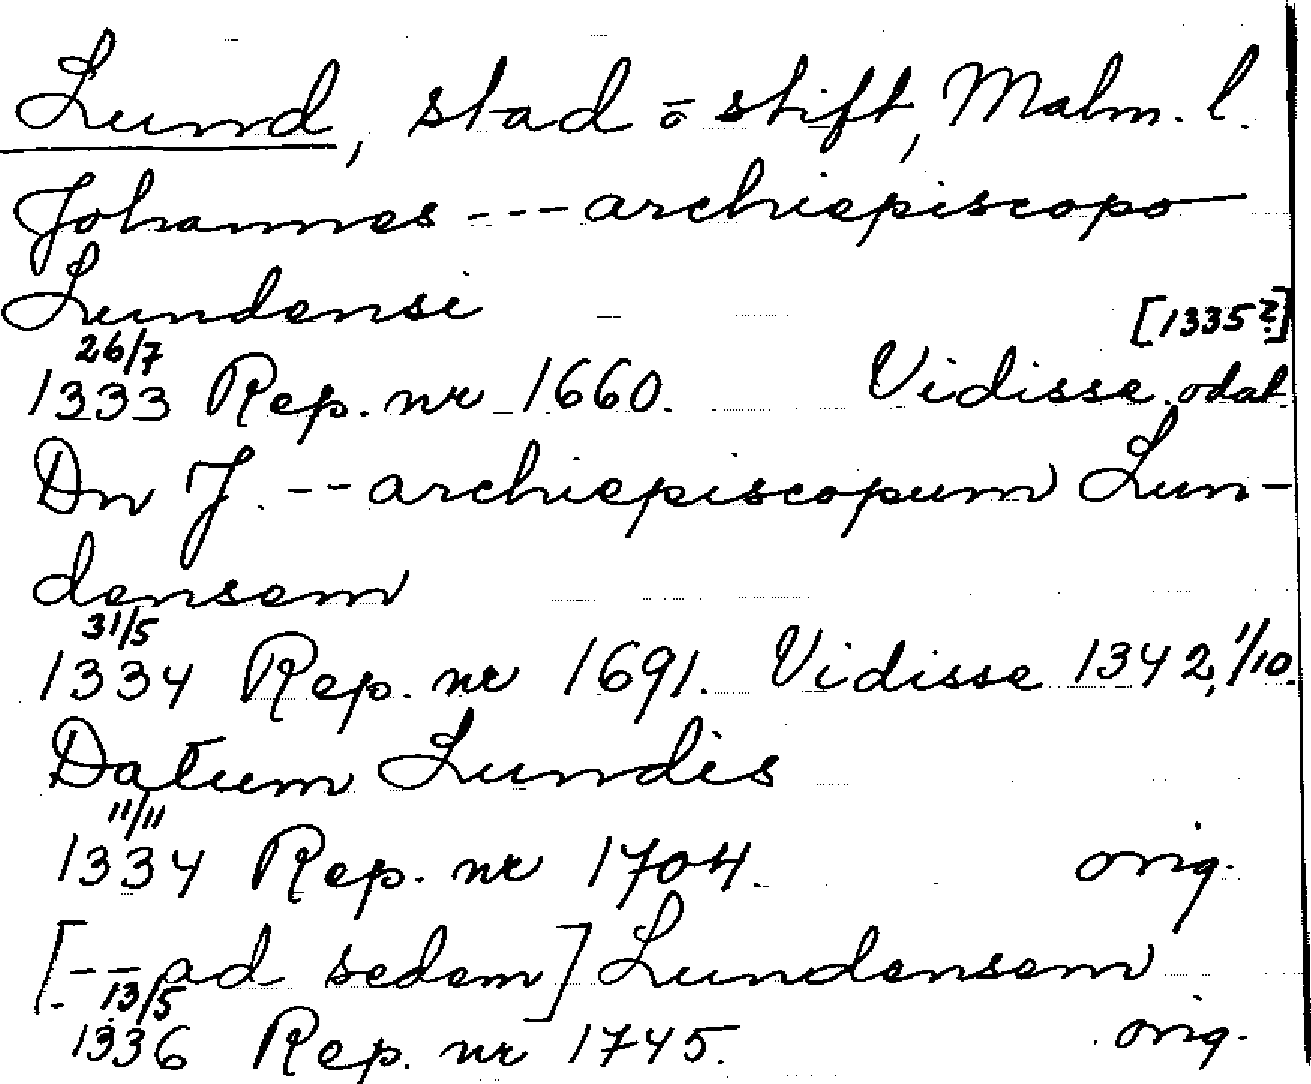 Lund, stad o stift, Malm. l.
Johannes --- archiepiscopo
Lundensi
[1335?]
26/7
1333 Rep. nr 1660. Vidisse odat.
Dn J. -- archiepiscopum Lun-
densem
31/5
1334 Rep. nr 1691. Vidisse 1342, 1/10.
Datum Lundis
11/11
1334 Rep. nr 1704. orig.
[-- ad sedem] Lundensem
13/5
1336 Rep. nr 1745. orig.